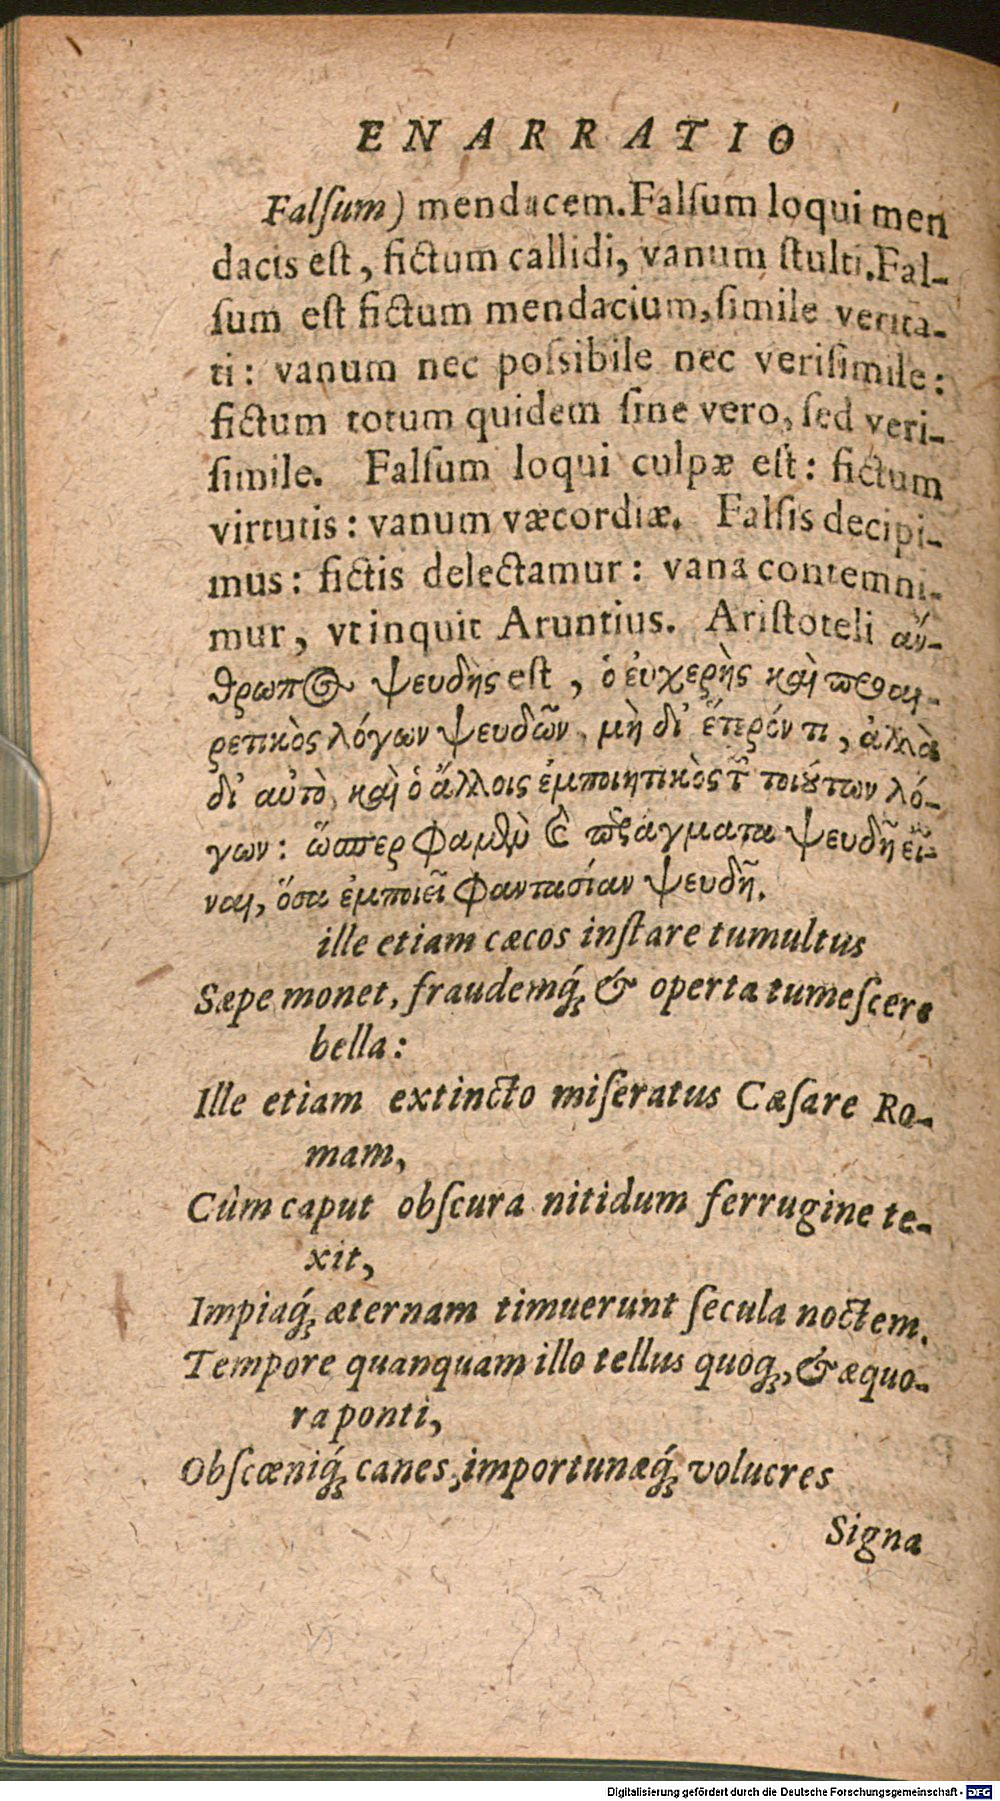 ENARRATIO
Falſum) mendacem. Falſum loqui men
dacis eſt, fictum callidi, vanum ſtulti. Fal-
ſum eſt fictum mendacium, ſimile verita-
ti: vanum nec poſsibile nec veriſimile:
fictum totum quidem ſine vero, ſed veri-
ſimile. Falſum loqui culpæ eſt: fictum
virtutis: vanum væcordiæ. Falſis decipi-
mus: fictis delectamur: vana contemni-
mur, vt inquit Aruntius. Ariſtoteli ἄν-
θρωπος ψευδὴς eſt, ὁ εὐχερὴς καὶ προαι-
ρετικὸς λόγων ψευδῶν, μὴ δι' ἕτερόν τι, ἀλλὰ
δι' αὐτὸ, καὶ ὁ ἄλλοις ἐμποιητικὸς τῶν τοιούτων λό-
γων: ὥσπερ φαμὲν καὶ πράγματα ψευδῆ εἶ-
ναι, ὅσα ἐμποιεῖ φαντασίαν ψευδῆ.
ille etiam cæcos inſtare tumultus
Sæpe monet, fraudemq́; & operta tumeſcere
bella:
Ille etiam extincto miſeratus Cæſare Ro-
mam,
Cûm caput obſcura nitidum ferrugine te-
xit,
Impiaq́; æternam timuerunt ſecula noctem.
Tempore quanquam illo tellus quoq;, & æquo-
ra ponti,
Obſcœniq́; canes, importunæq́; volucres
Signa
Digitalisierung gefördert durch die Deutsche Forschungsgemeinschaft - DFG